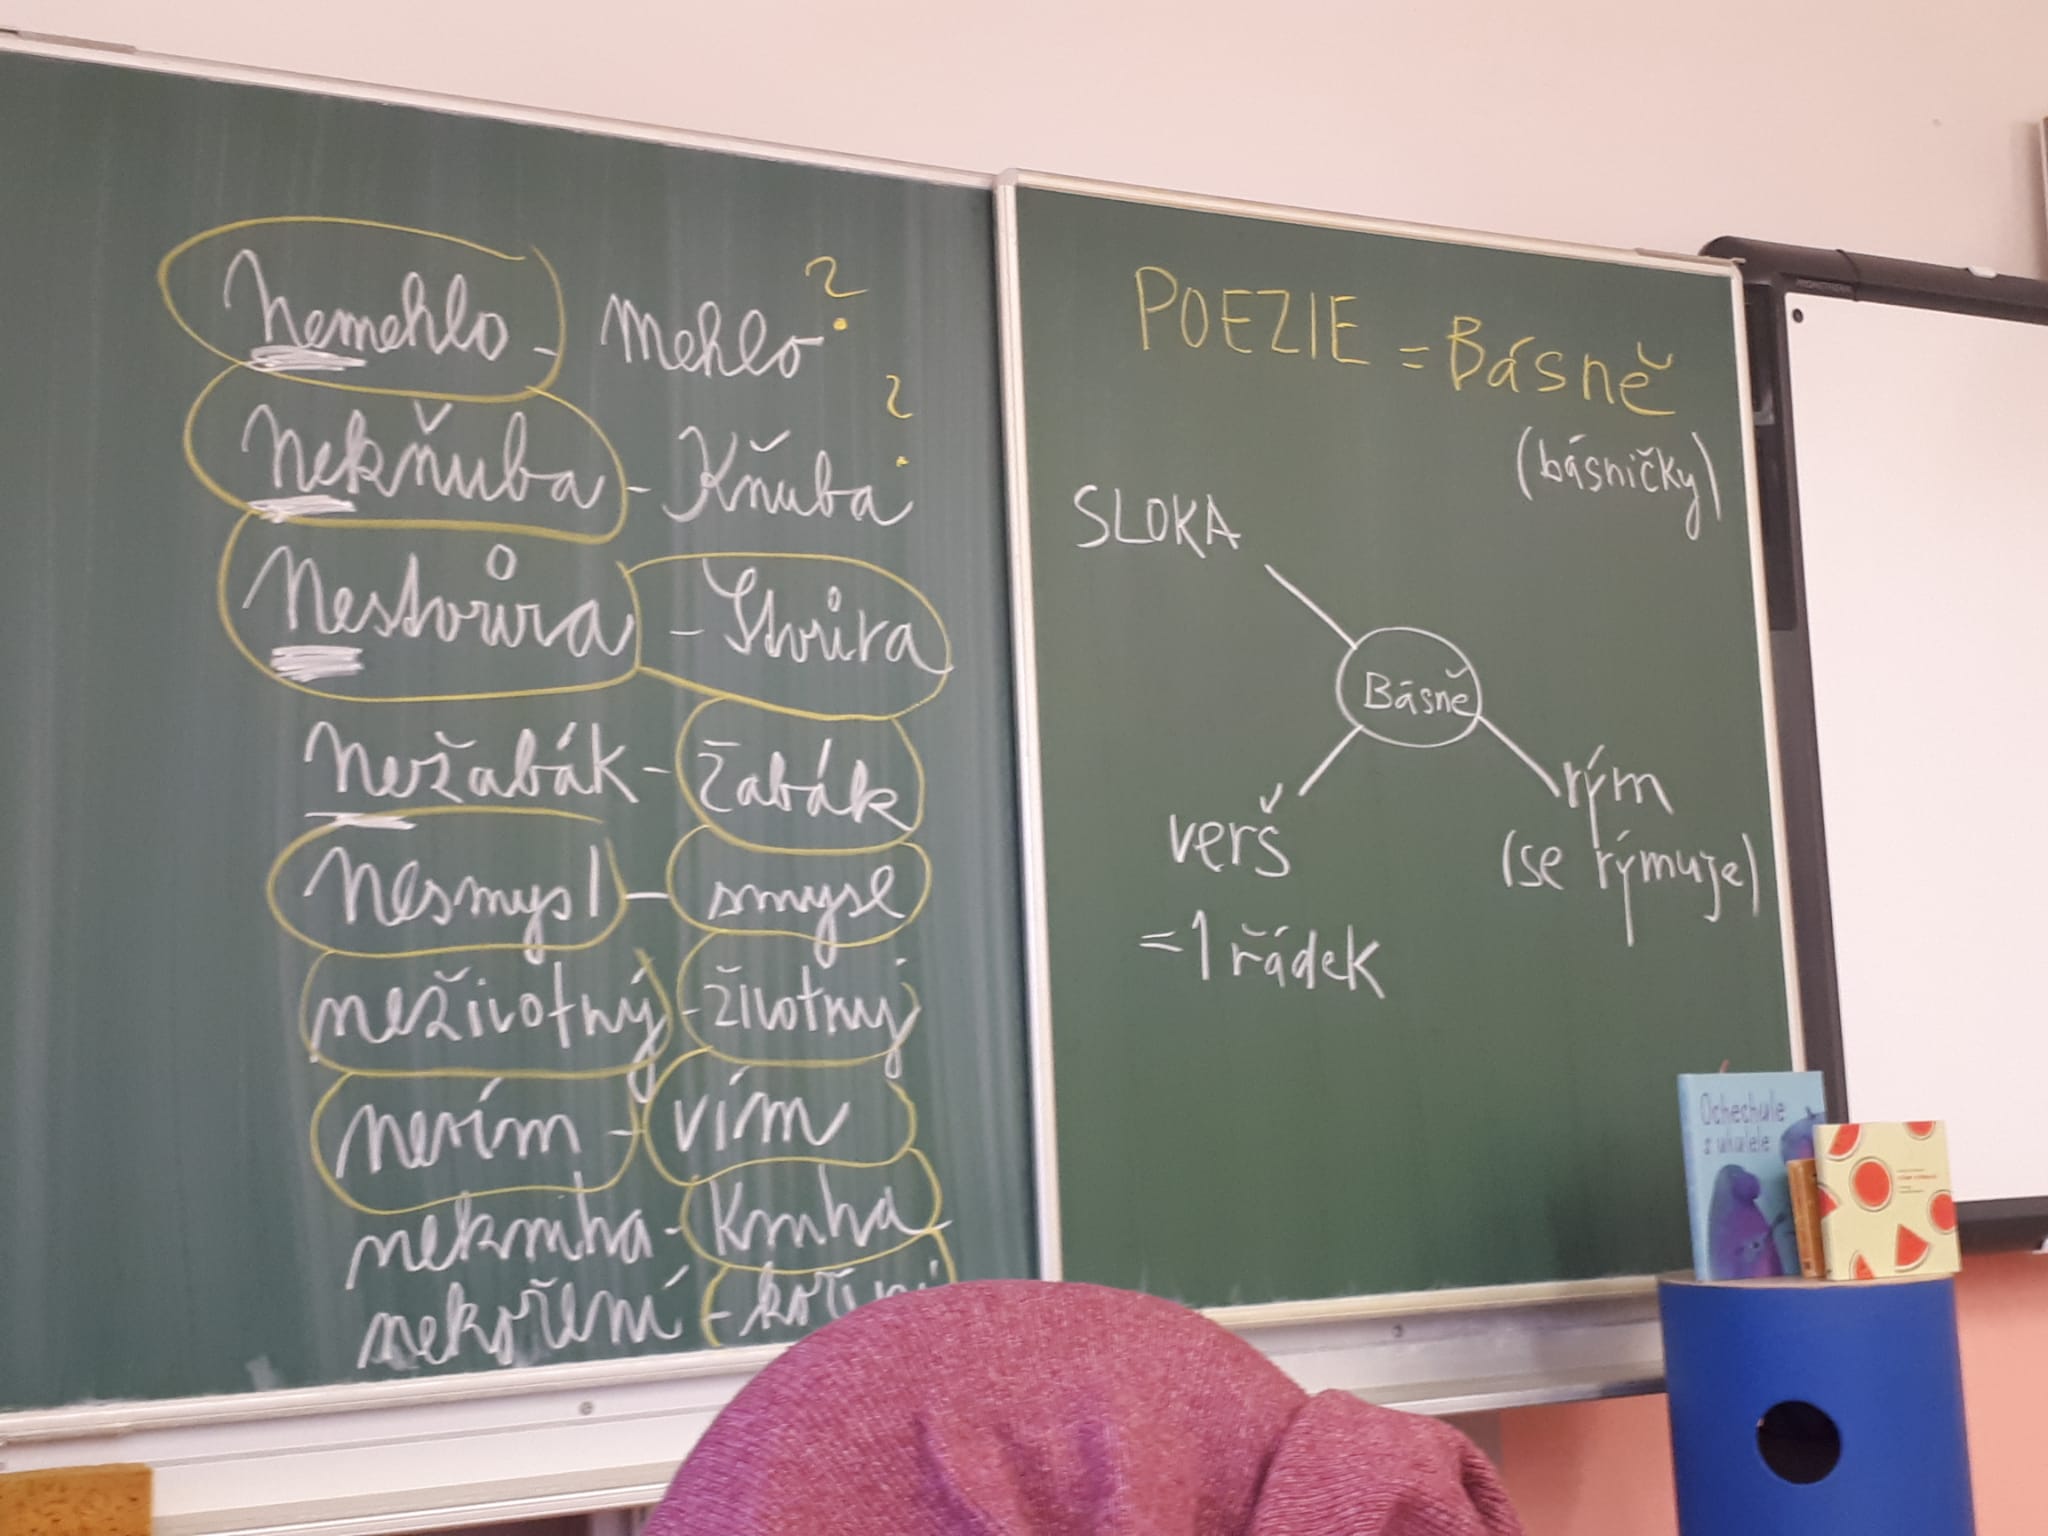 Nemehlo - Mehlo ?
Nekňuba - Kňuba ?
Nestvůra - Stvůra
Nežabák - žabák
Nesmysl - smysl
neživotný - životný
nevím - vím
nekniha - Kniha
nekoření - koření
POEZIE = Básně
(básničky)
SLOKA
Básně
verš
= 1 řádek
rým
(se rýmuje)
Ochechule
s ukulele
PROMETHEAN